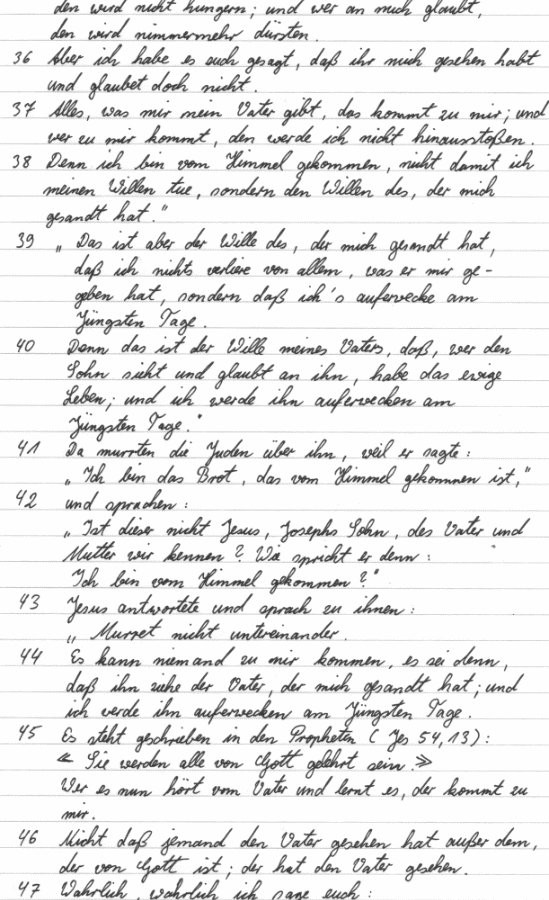 den wird nicht hungern; und wer an mich glaubt,
den wird nimmermehr dürsten.
36 Aber ich habe es euch gesagt, daß ihr mich gesehen habt
und glaubet doch nicht.
37 Alles, was mir mein Vater gibt, das kommt zu mir; und
wer zu mir kommt, den werde ich nicht hinausstoßen.
38 Denn ich bin vom Himmel gekommen, nicht damit ich
meinen Willen tue, sondern den Willen des, der mich
gesandt hat."
39 „Das ist aber der Wille des, der mich gesandt hat,
daß ich nichts verliere von allem, was er mir ge-
geben hat, sondern daß ich's auferwecke am
Jüngsten Tage.
40 Denn das ist der Wille meines Vaters, daß, wer den
Sohn sieht und glaubt an ihn, habe das ewige
Leben; und ich werde ihn auferwecken am
Jüngsten Tage."
41 Da murrten die Juden über ihn, weil er sagte:
„Ich bin das Brot, das vom Himmel gekommen ist,"
42 und sprachen:
„Ist dieser nicht Jesus, Josephs Sohn, des Vater und
Mutter wir kennen? Wie spricht er denn:
Ich bin vom Himmel gekommen?"
43 Jesus antwortete und sprach zu ihnen:
„Murret nicht untereinander.
44 Es kann niemand zu mir kommen, es sei denn,
daß ihn ziehe der Vater, der mich gesandt hat; und
ich werde ihn auferwecken am Jüngsten Tage.
45 Es steht geschrieben in den Propheten (Jes 54,13):
« Sie werden alle von Gott gelehrt sein.»
Wer es nun hört vom Vater und lernt es, der kommt zu
mir.
46 Nicht daß jemand den Vater gesehen hat außer dem,
der von Gott ist; der hat den Vater gesehen.
47 Wahrlich, wahrlich ich sage euch: